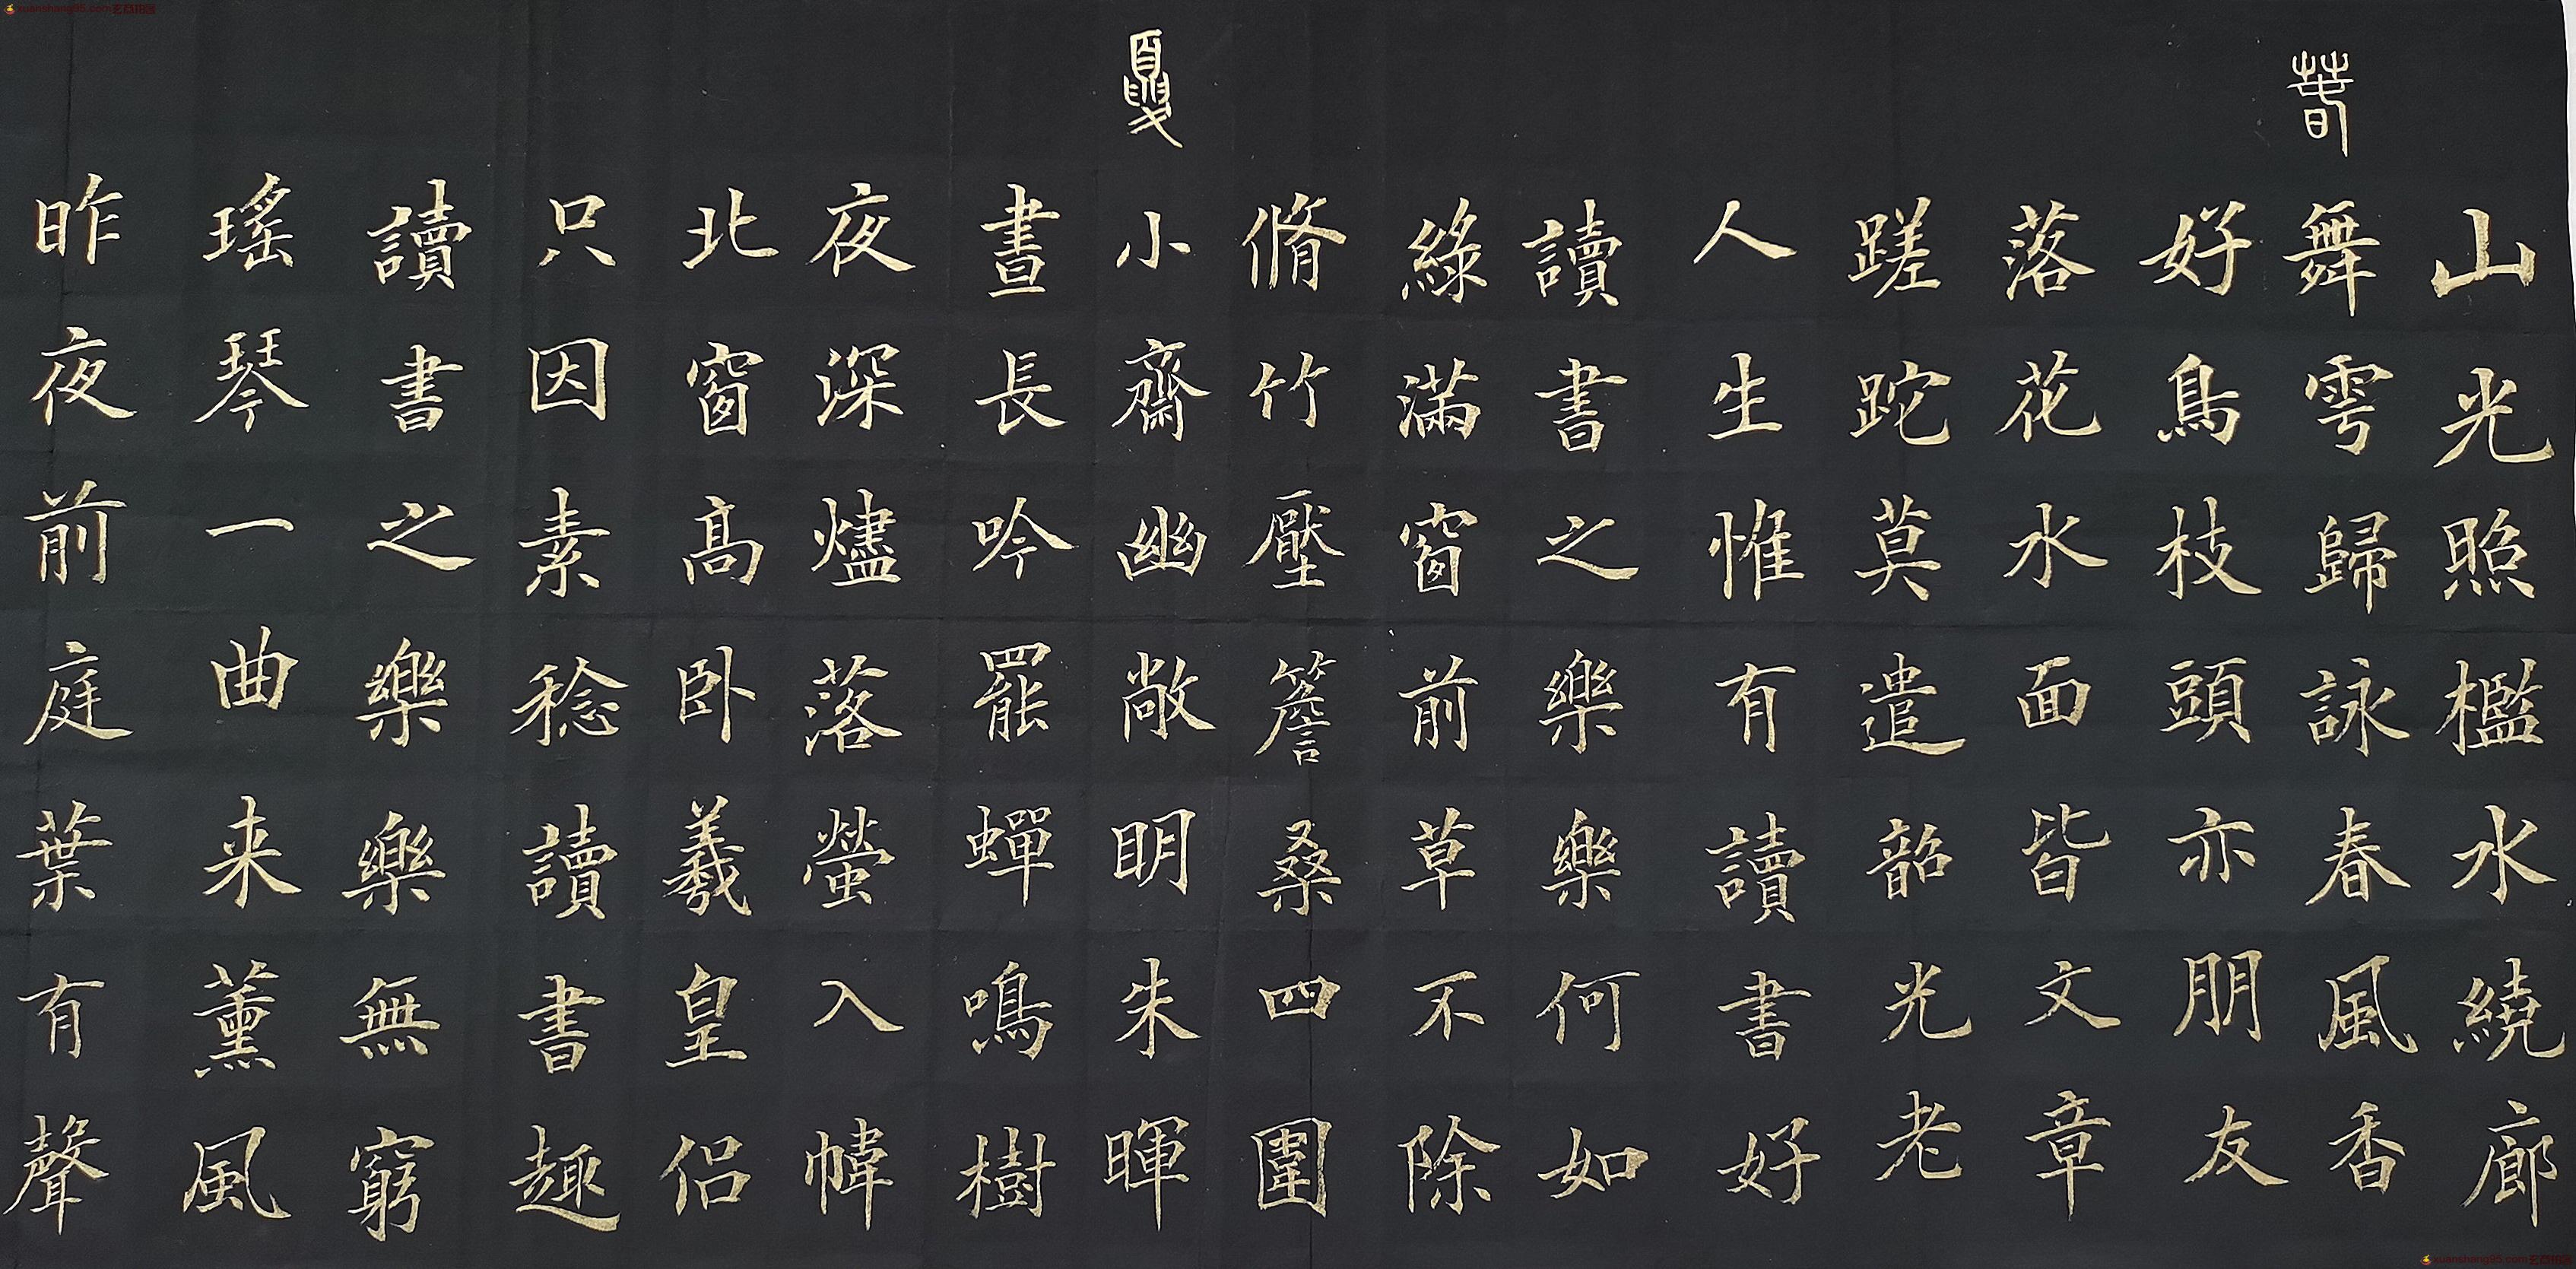 春
山光照檻水繞廊
舞雩歸詠春風香
好鳥枝頭亦朋友
落花水面皆文章
蹉跎莫遣韶光老
人生惟有讀書好
讀書之樂樂何如
綠滿窗前草不除
夏
脩竹壓簷桑四圍
小齋幽敞明朱暉
晝長吟罷蟬鳴樹
夜深燼落螢入幃
北窗高卧羲皇侣
只因素稔讀書趣
讀書之樂樂無窮
瑤琴一曲来薰風
昨夜前庭葉有聲